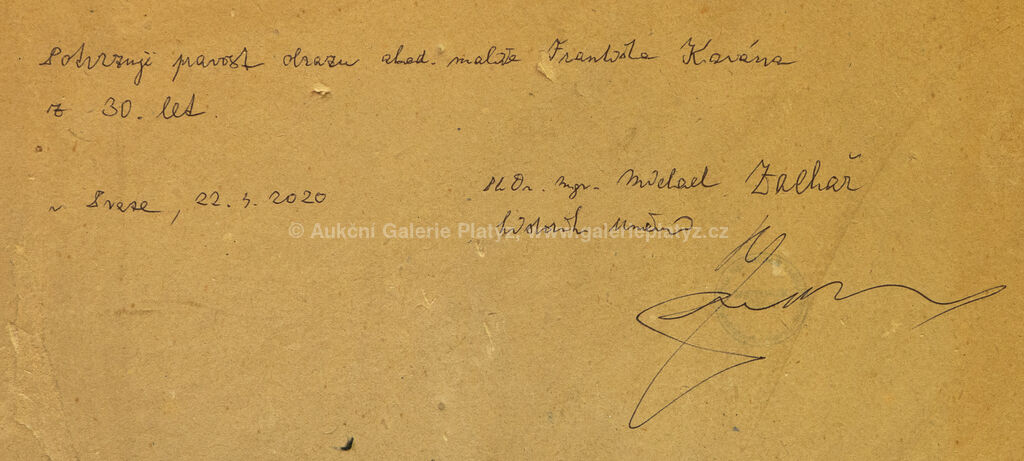 Potvrzuji pravost obrazu akad. malíře Františka Kavána
z 30. let.
v Praze, 22. 5. 2020
PhDr. Mgr. Michael Zachař
historik umění
© Aukční Galerie Platýz, www.galerieplatyz.cz